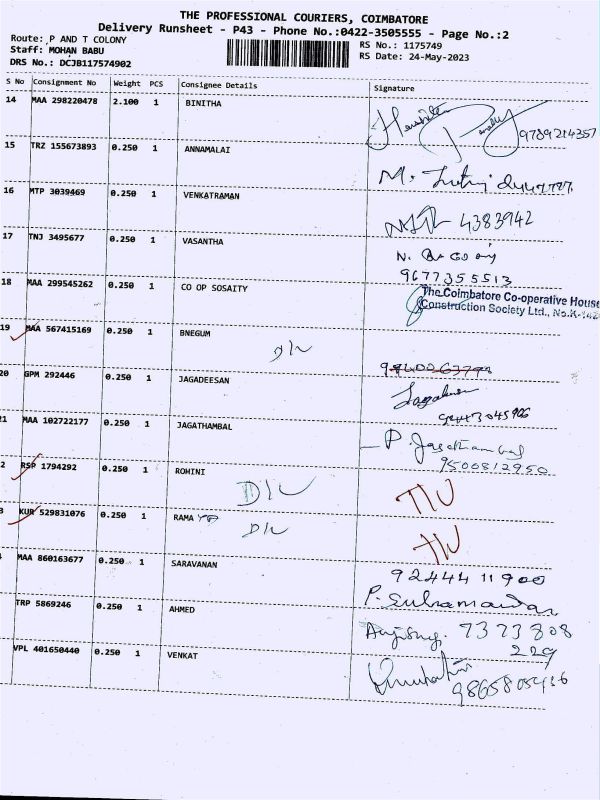 THE PROFESSIONAL COURIERS, COIMBATORE
Delivery Runsheet - P43 - Phone No.:0422-3505555 - Page No.:2
Route: P AND T COLONY
RS No.: 1175749
Staff: MOHAN BABU
RS Date: 24-May-2023
DRS No.: DCJB117574902
S No Consignment No Weight PCS Consignee Details Signature
14 MAA 298220478 2.100 1 BINITHA
9789214357
15 TRZ 155673893 0.250 1 ANNAMALAI
M.
16 MTP 3039469 0.250 1 VENKATRAMAN
4383942
17 TNJ 3495677 0.250 1 VASANTHA
N.
9677355513
18 MAA 299545262 0.250 1 CO OP SOSAITY
The Coimbatore Co-operative House
Construction Society Ltd., No.K-
19 MAA 567415169 0.250 1 BNEGUM
D/L
20 GPM 292446 0.250 1 JAGADEESAN
Jagadeesan
21 MAA 102722177 0.250 1 JAGATHAMBAL
P. Jagathambal
9500812950
2 RSP 1794292 0.250 1 ROHINI
D/L
3 KUR 529831076 0.250 1 RAMA
D/L
MAA 860163677 0.250 1 SARAVANAN
92444 11900
P. Subramanian
TRP 5869246 0.250 1 AHMED
7373808
229
VPL 401650440 0.250 1 VENKAT
9865805436